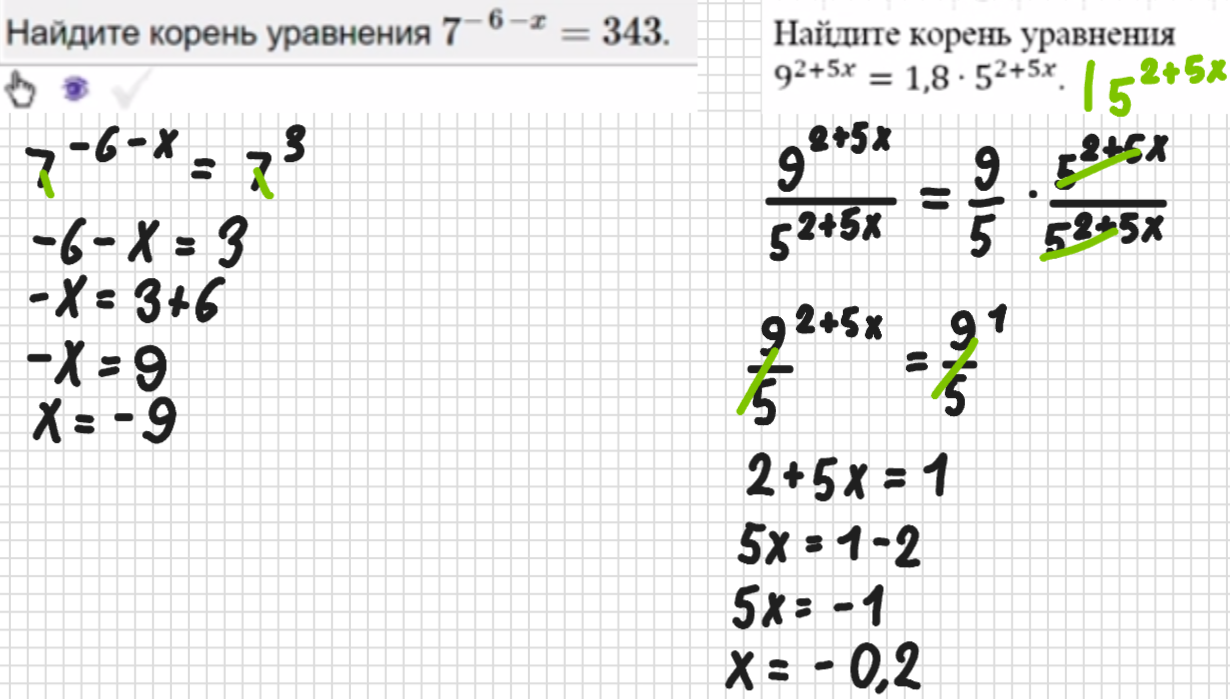 Найдите корень уравнения 7^{-6-x} = 343.
7^{-6-x} = 7^3
-6-x = 3
-x = 3+6
-x = 9
x = -9
Найдите корень уравнения
9^{2+5x} = 1,8 · 5^{2+5x}. | 5^{2+5x}
\frac{9^{2+5x}}{5^{2+5x}} = \frac{9}{5} · \frac{5^{2+5x}}{5^{2+5x}}
\frac{9}{5}^{2+5x} = \frac{9}{5}^1
2+5x = 1
5x = 1-2
5x = -1
x = -0,2